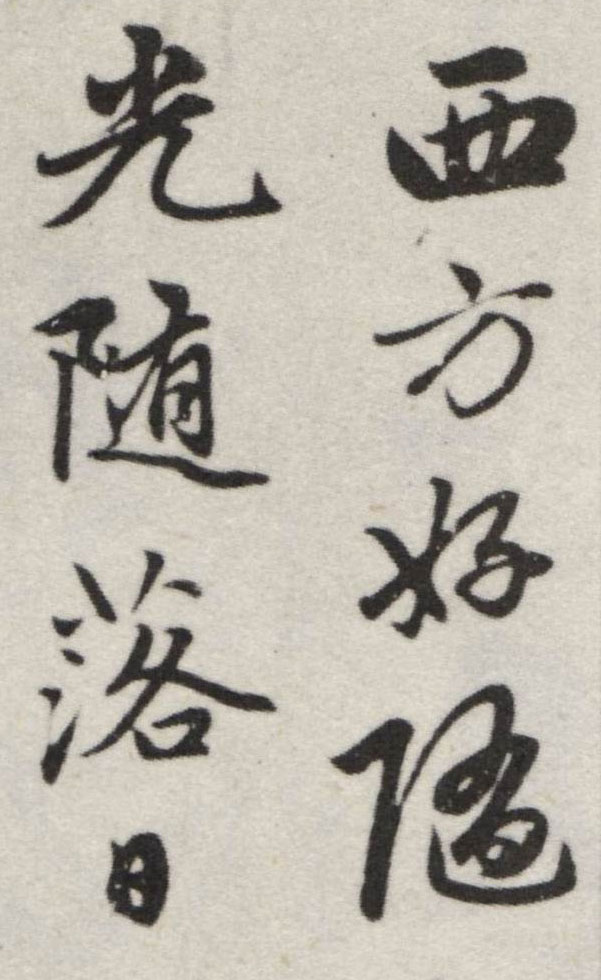 西方好随
光随落日